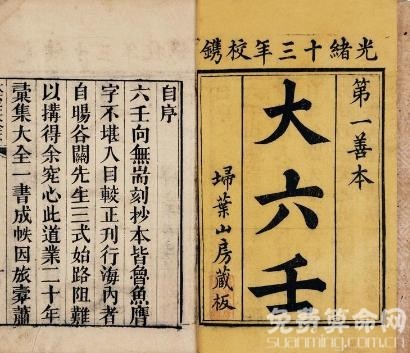 光緒十三年校鐫
第一善本
大六壬
埽葉山房藏板
自序
六壬向無耑刻抄本皆魯魚贋
字不堪入目較正刊行海內者
自暘谷關先生三式始路阻難
以搆得余究心此道業二十年
彙集大全一書成帙因旅橐蕭
免费算命网
suanming.com